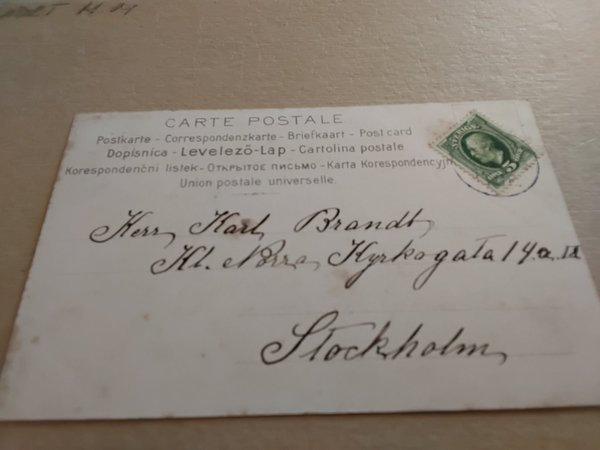 CARTE POSTALE
Postkarte - Correspondenzkarte - Briefkaart - Post card
Dopisnica - Levelező-Lap - Cartolina postale
Korespondenčni listek - Открытое письмо - Karta Korespondencyjn
Union postale universelle.
SVERIGE
5
Herr Karl Brandt
Kl. Norra Kyrkogata 14 a II
Stockholm